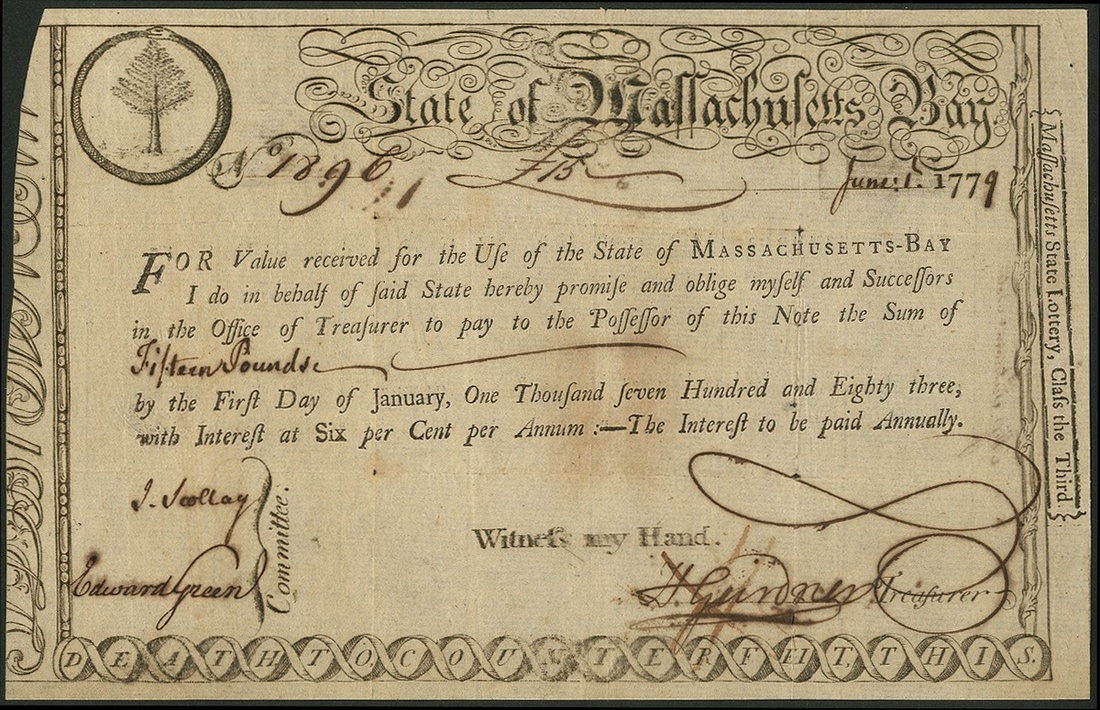 State of Maſſachuſetts Bay
No. 1896 £15 June 1. 1779
FOR Value received for the Uſe of the State of MASSACHUSETTS-BAY
I do in behalf of ſaid State hereby promiſe and oblige myſelf and Succeſſors
in the Office of Treaſurer to pay to the Poſſeſſor of this Note the Sum of
Fifteen Pounds
by the Firſt Day of January, One Thouſand ſeven Hundred and Eighty three,
with Intereſt at Six per Cent per Annum :—The Intereſt to be paid Annually.
J. Scollay
Edward Green
Committee.
Witneſs my Hand.
H. Gardner Treaſurer
DEATH TO. COUNTERFEIT. THIS.
{Maſſachuſetts State Lottery, Claſs the Third.}